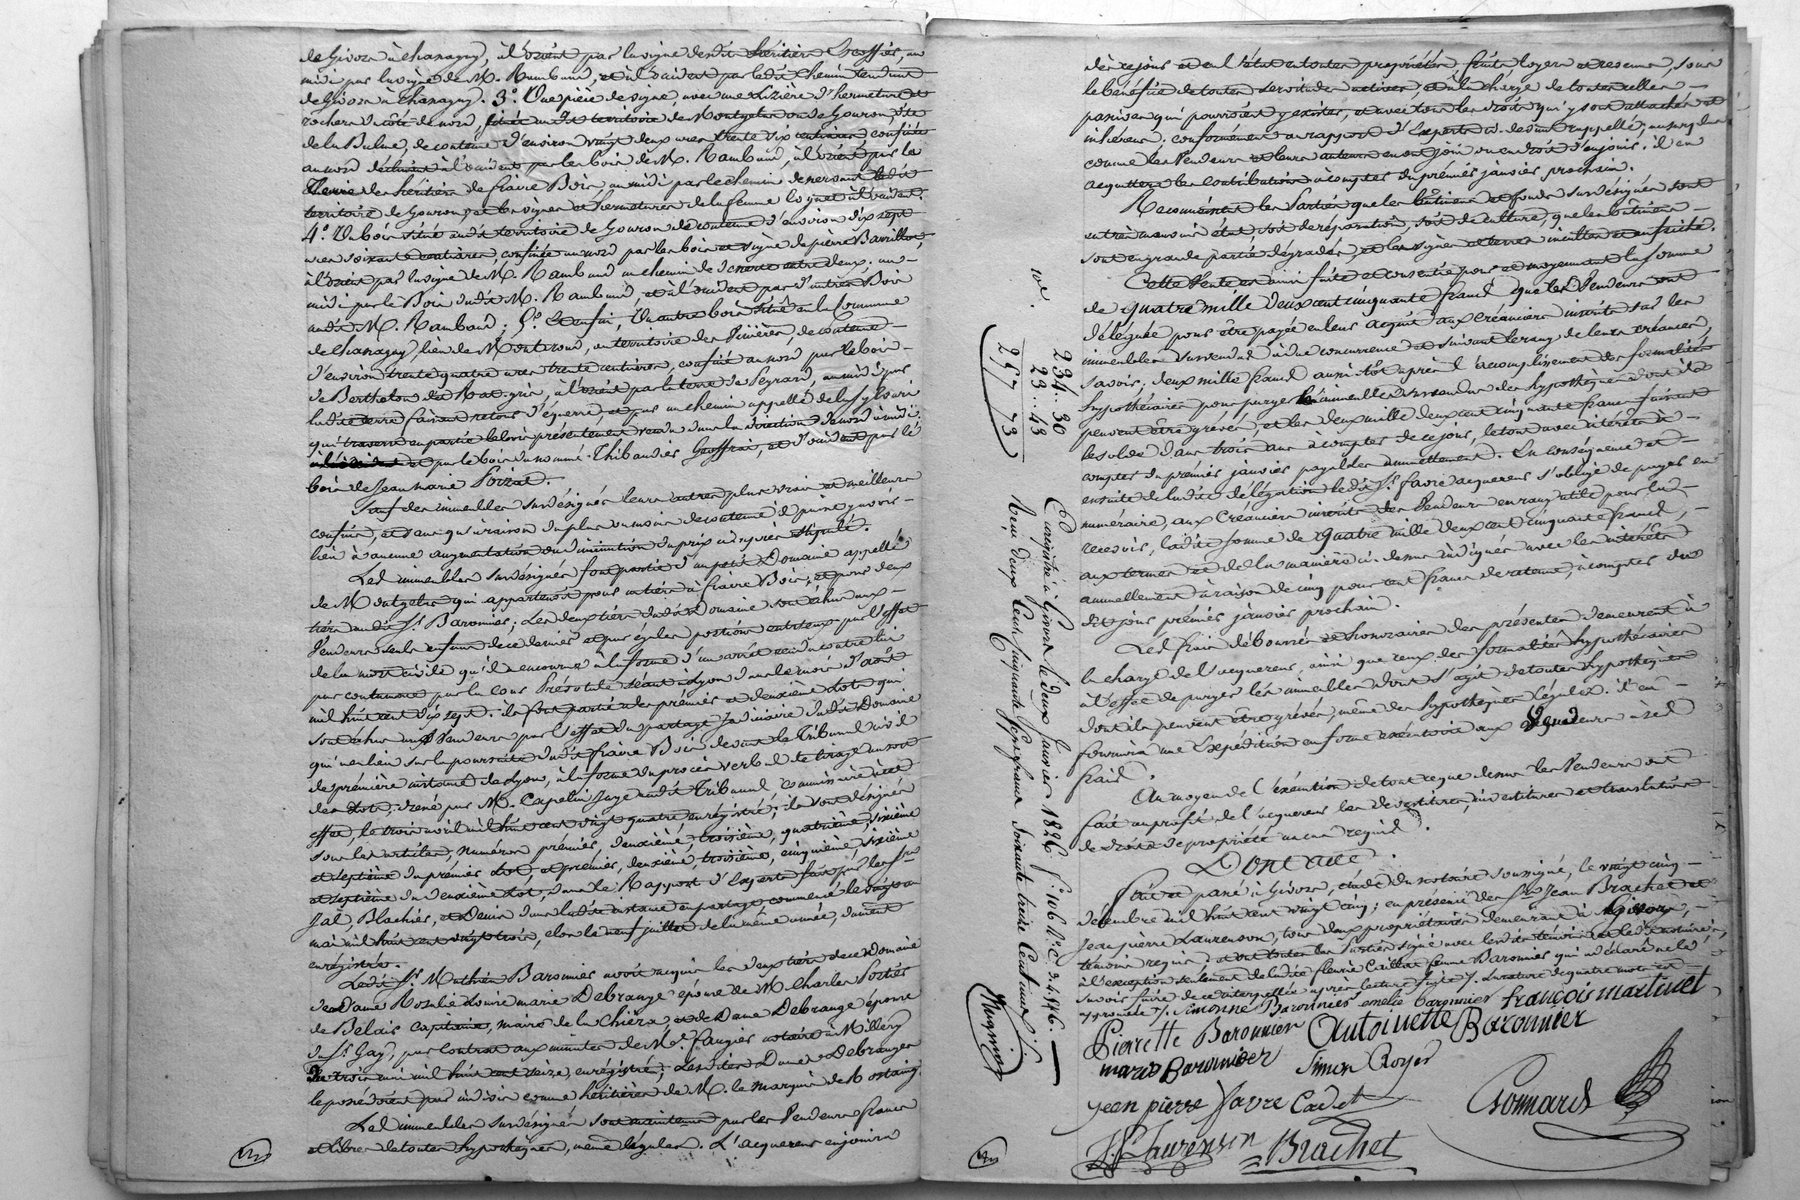 de Givors à Chanagny, à l'orient par la vigne dudit héritiers Escoffier, au
midi par la vigne de M. Rambaud, et à l'occident par ledit chemin tendant
de Givors à Chanagny. 3.° Une pièce de vigne, avec une lizière d'hermeture et
rochers à côté de nord, située audit territoire de Montgelas ou de Gouron, dite
de la Bulne, de contenue d'environ vingt deux ares trente six centiares, confinée
au nord déclinant à l'occident par les bois de M. Rambaud, à l'orient par la
Terre des héritiers de Claire Bois, au midi par le chemin de versant ledit
territoire de Gouron, et les vignes et hermetures de la femme Cognet à l'occident.
4.° Un bois situé audit territoire de Gouron de contenue d'environ dix sept
ares soixante centiares, confinée au nord par les bois et vigne de pierre Barillon,
à l'orient par la vigne de M. Rambaud un chemin de desserte entre deux, au
midi par le Bois dudit M. Rambaud, et à l'occident par d'autres Bois
audit M. Rambaud; 5.° Et enfin, Un autre bois situé en la Commune
de Chanagny, lieu de Montrond, au territoire des Pinières, de contenue
d'environ trente quatre ares trente centiares, confiné au nord par le bois
de Berthelon dit Rat-gris, à l'orient par la terre de Peyrard, au midi par
ladite terre faisant retour d'équerre, et par un chemin appellé de
qui traverse en partie le bois présentement vendu dans la direction de nord à midi
et par le bois du nommé Thibaudier Geoffrai, et d'occident par le
bois de Jean Marie Poizat.
Sauf des immeubles susdésignés leurs autres plus vrais et meilleurs
confins, et sans qu'à raison du plus ou moins de contenue il puisse y avoir
lieu à aucune augmentation ou diminution du prix ci après stipulé.
Lesd. immeubles susdésignés font partie d'un petit Domaine appellé
de Montgelas qui appartenoit pour un tiers à Claire Bois, et pour deux
tiers audit Sr. Baronnier; Les deux tiers dudit Domaine sont échus aux
Vendeurs seuls enfans de ce dernier et par égales portions entr'eux par l'effet
de la mort civile qu'il a encourue à la forme d'un arrêt rendu contre lui
par contumace par la cour Prévotale séant à Lyon dans le mois d'août
mil huit cent dix sept. ils font partie des premier et deuxième lots qui
sont échus aux Vendeurs par l'effet du partage Judiciaire dudit Domaine
qui a eu lieu sur la poursuite dudit Claire Bois devant le Tribunal civil
de première instance de Lyon, à la forme du procès verbal de tirage au sort
des lots, dressé par M. Capelin juge audit Tribunal Commissaire à cet
effet, le trois avril mil huit cent vingt quatre enrégistré; ils sont désignés
sous les articles, numéros premier, deuxième, troisième, quatrième, sixième
et septième du premier lot, et premier, deuxième, troisième, cinquième, sixième
et septième du deuxième lot, dans le Rapport d'Experts fait par les srs.
Jal, Blachier, et Denis dans ladite instance en partage commencé le
mai mil huit cent vingt trois, clos le neuf juillet de la même année, dument
enrégistré.
Ledit Sr. Mathieu Baronnier avoit acquis les deux tiers de ce Domaine
de Dame Rosalie Louise marie Debrange épouse de M. Charles Portes
de Belais capitaine, maire de la Chièra, et de Dame Debrange épouse
du Sr. Gay, par Contrat aux minutes de Me. Faugier notaire à Millery
du trois mai mil huit cent seize, enrégistré; Lesdites Dames Debrange
le possédoient par indivis comme héritières de M. le marquis de Rostaing.
Lesd. immeubles susdésignés sont maintenus par les Vendeurs francs
et libres de toutes hypothèques, même légales. L'acquereur en jouira
dès ce jour et en l'état en toute propriété, fruits, loyers et revenus, sous
le bénéfice de toutes servitudes actives, et à la charge de toutes celles
passives qui pourroient y exister, et avec tous les droits qui y sont attachés et
inhérens, conformément au rapport d'Experts ci dessus rappellé, ainsi que
comme les Vendeurs et leurs auteurs en ont joui ou eu droit d'en jouir. il en
acquittera les contributions à compter du premier janvier prochain.
Reconnoissent les Parties que les bâtimens et fonds susdésignés sont
en très mauvais état soit de réparation, soit de culture, que les bâtimens
sont en grande partie dégradés et les vignes et terres incultes et en friche.
Cette Vente est ainsi faite et consentie pour et moyennant la somme
de quatre mille deux cent cinquante francs que les Vendeurs ont
délégué pour être payée en leur acquit aux créanciers inscrits sur les
immeubles susvendus à due concurrence et suivant le rang de leurs créances,
savoir; deux mille francs aussitôt après l'accomplissement des formalités
hypothécaires pour purger les immeubles susvendus des hypothèques dont ils
peuvent être grévés, et les deux mille deux cent cinquante francs faisant
le solde dans trois ans à compter de ce jour, le tout avec intérêts à
compter du premier janvier payables annuellement. En conséquence et
ensuite de ladite délégation ledit Sr. Favre acquereur s'oblige de payer en
numéraire, aux Créanciers inscrits des Vendeurs en rang utile pour la
recevoir, ladite somme de quatre mille deux cent cinquante francs,
aux termes et de la manière ci-dessus indiqués avec les intérêts
annuellement à raison de cinq pour cent francs de retenue, à compter du
dit jour premier janvier prochain.
Les frais déboursés et honoraires des présentes demeurent à
la charge de l'acquereur, ainsi que ceux des formalités hypothécaires
à l'effet de purger les immeubles dont s'agit de toutes hypothèques
dont ils peuvent être grévés, même des hypothèques légales. il en
fournira une Expédition en forme exécutoire aux Vendeurs à ses
frais.
Au moyen de l'éxécution de tout ce que dessus les Vendeurs ont
fait au profit de l'acquereur les devestitures, investitures et translations
de droits de propriété en ce cas requis.
Dont acte.
Fait et passé à Givors, étude du notaire soussigné, le vingt cinq
décembre mil huit cent vingt cinq; en présence des Srs. Jean Brachet et
Jean pierre Laurenson, tous deux propriétaires demeurant à Givors,
témoins requis, et ont toutes les Parties signé avec lesdits témoins et led. notaire,
à l'exception seulement de ladite fleurie Caillot femme Baronnier qui a déclaré ne le
savoir faire de ce interpellée après lecture faite. rature de quatre mots est
approuvée. Simonne Baronnier emelie baronnier françois martinet
Pierrette Baronnier Antoinette Baronnier
marie Baronnier Simon Royer
jean pierre favre Cadet Gonnard
J. P. Laurenson Brachet
234.. 30
23.. 43
257 73
Enregistré à Givors le deux Janvier 1826 f.° 106 R.° C.
Reçu Deux Cent cinquante Sept francs Soixante treize Centimes